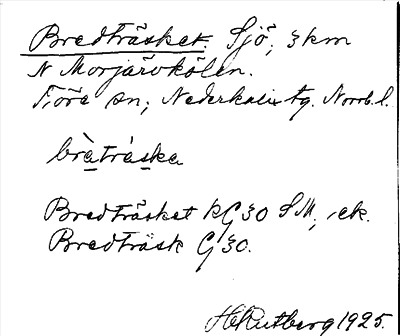 Bredträsket. Sjö, 3 km
N Morjärvkölen.
Töre sn, Nederkalix tg. Norrb. l.
bràtráska
Bredträsket KG 30 SM, ek.
Bredträsk G 30.
H Rutberg 1925.